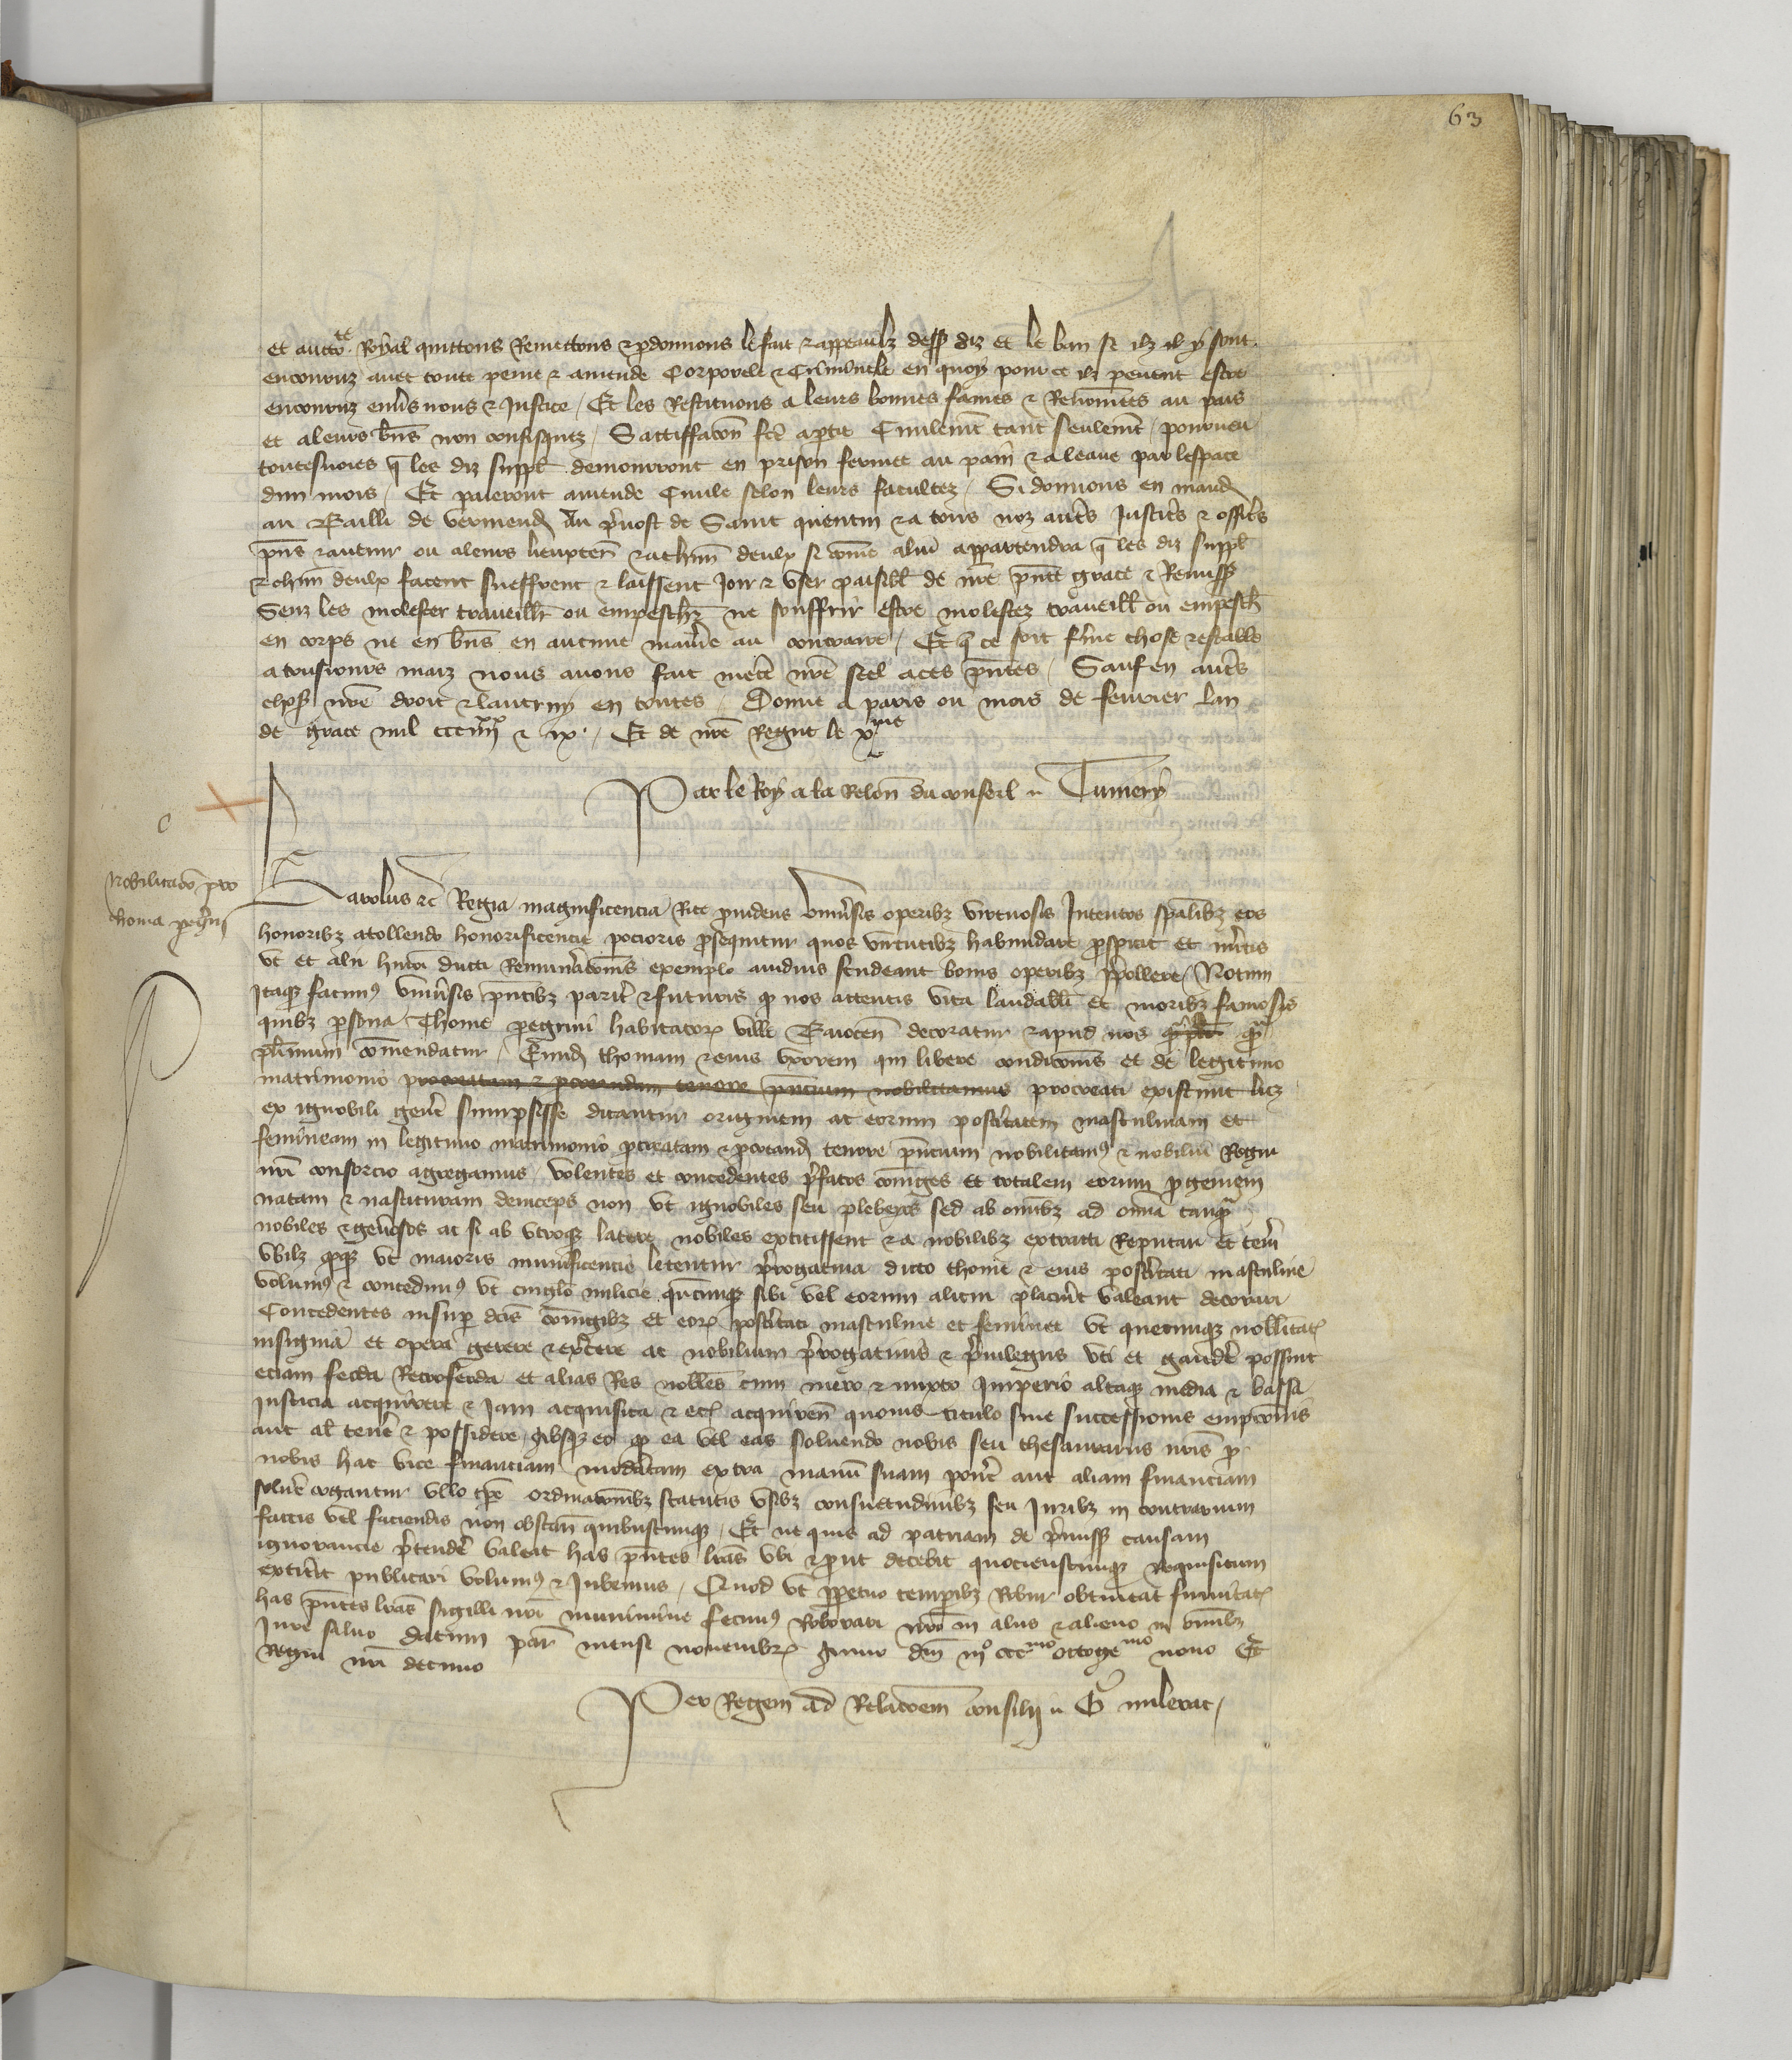 63
et aucto.te Royal quittons Remettons & pdonnons le fait & appeaulz dess diz et le ban se ilz il y sont
encouruz auec toute peine & amende Corporele & Criminele en quoy pour ce ilz peuent estre
encouruz enus nous & Justice / Et les Restituons a leurs bonnes fames & Renomees au pais
et a leurs bns non confisquez / Sattiffacon fte a ptie Ciuilemt tant seulemt / pourueu
toutesuoies q les diz suppl demourront en prison fermee au pain & a leaue par lespace
dun mois / Et paieront amende Ciuile selon leurs facultez / Si donnons en mand
au Bailli de vermend Au pruost de Saint quentin & a tous noz auts Justiers & officrs
pns & auenir ou a leurs lieuxten & a chun deulx si come a lui appartendra q les diz suppl
& chun deulx facent sueffrent & laissent Joir & vser paisibl de nre pnte grace & Remiss
Senz les molester traueillr ou empeschr ne souffrir estre molestez traueill ou empesch
en corps ne en bns en aucune maniere au contraire / Et q ce soit ferme chose & estable
a tousiours maiz nous auons fait metre nre seel a ces pntes / Sauf en auts
choss nre droit & lautruy en toutes / Donne a paris ou mois de feurier lan
de grace mil ccciiiixx & ix / Et de nre Regne le xme
Par le Roy a la Relon du conseil ii Tumery
Nobilitaco pro
thoma pegrini
Karolus &c Regia magnificencia Rite prudens vniusis operibz virtuosis Intentos spalibz eos
honoribz atollendo honorificencie pocioris psequitur quos virtutibz habundare pspicit et mitis
vt et alii huioi ducti Remuneracoms exemplo auidius studeant bonis operibz ppollere / Notum
Itaqz facimus vniusis pntibz parit & futuris q nos attentis vita laudabli et moribz famosis
quibz psona Thome pegrini habitators ville Baiocen decoratur & apud nos qm plu qm
plimum comendatur / Eund thomam & eius vxorem qui libere condicoms et de legitimo
matrimonio procreatam & procreandam tenore pncium nobilitamus procreati existunt licz
ex ignobili genere sumpsisse dicantur originem ac eorum posteritatem masculinam et
femineam in legitimo matrimonio pcreatam & pcreand tenore pncium nobilitamus & nobiliu Regni
nri consorcio agregamus volentes et concedentes prfatos coniuges et totalem eorum pgeniem
natam & nascituram deinceps non vt ignobiles seu plebeyos sed ab omibz ad omia tanqm
nobiles & genosos ac si ab vtroqz latere nobiles extitissent & a nobilibz extracti Reputari et teneri
vbilz qqz vt maioris munificencie letentur prrogatiua dicto thome & eius posteritati masculine
volumus & concedimus vt cinglo milicie qncunqz sibi vel eorum alicui placuit valeant decorari
Concedentes insup dcis coniugibz et eor posteritati masculine et feminee vt quecunqz nobilitatis
insignia et opera gerere & exercere ac nobilium prrogatiuis & priuilegiis vti et gaudere possint
eciam feoda Retrofeoda et alias Res nobiles cum mero & mixto Imperio altaqz media & bassa
Justicia acquirere & Jam acquisita & eciam acquiren quouis titulo siue successionis empconis
aut al tenere & possidere absqz eo q ea vel eas soluendo nobis seu thesaurariis nris p
nobis hac vice financiam moderatam extra manu suam ponere aut aliam financiam
soluere cogantur vllo tpe ordinaconibz statutis vsibz consuetudinibz seu Juribz in contrarium
factis vel faciendis non obstan quibuscunqz / Et ne quis ad patriam de prmiss causam
ignorancie prtendere valeat has pntes lras vbi & prout decebit quocienscunqz Requisitum
extiterit publicari volumus & Jubemus / Quod vt ppetuo temporibz Robur obtineat firmitatis
has pntes lras sigilli nri munimine fecimus Roborari nro in aliis & alieno in omibz
Jure saluo datum par mense nouembr Anno dni mo cccmo octogemo nono Et
Regni nri decimo
Per Regem ad Relacoem consilii ii G milerac